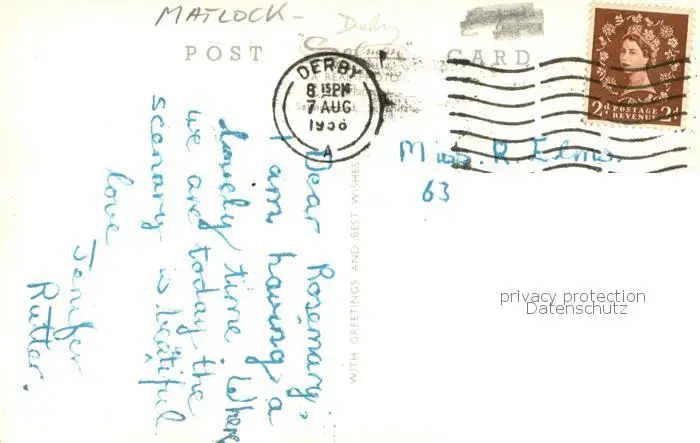 MATLOCK -
Derby
POST CARD
"Salmon"
DERBY
8 15 PM
7 AUG
1958
A
2d POSTAGE 2d
REVENUE
Miss. R. Elms.
63
WITH GREETINGS AND BEST WISHES
Dear Rosemary,
I am having a
lovely time. Where
we are today the
scenary is beautiful
love
Jenifer
Rutter.
privacy protection
Datenschutz